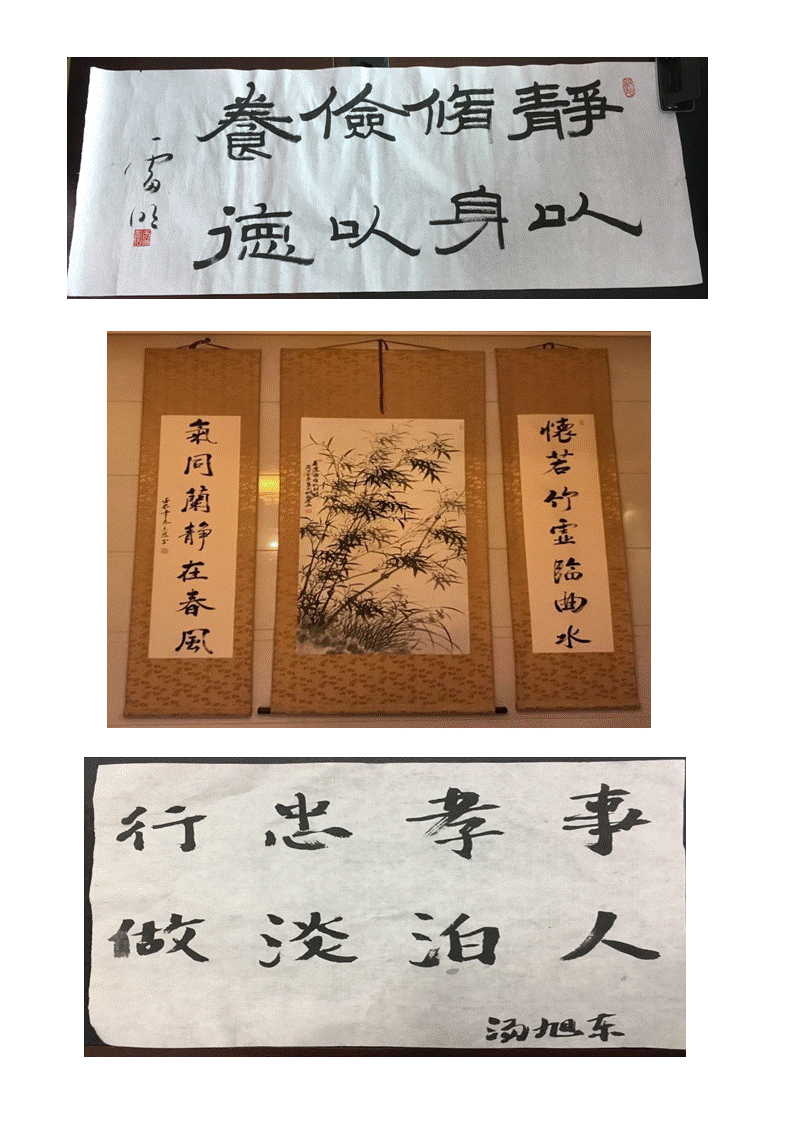 靜以
脩身
儉以
養德
雷明
懷若竹虛臨曲水
氣同蘭静在春風
行忠孝事
做淡泊人
汤旭东